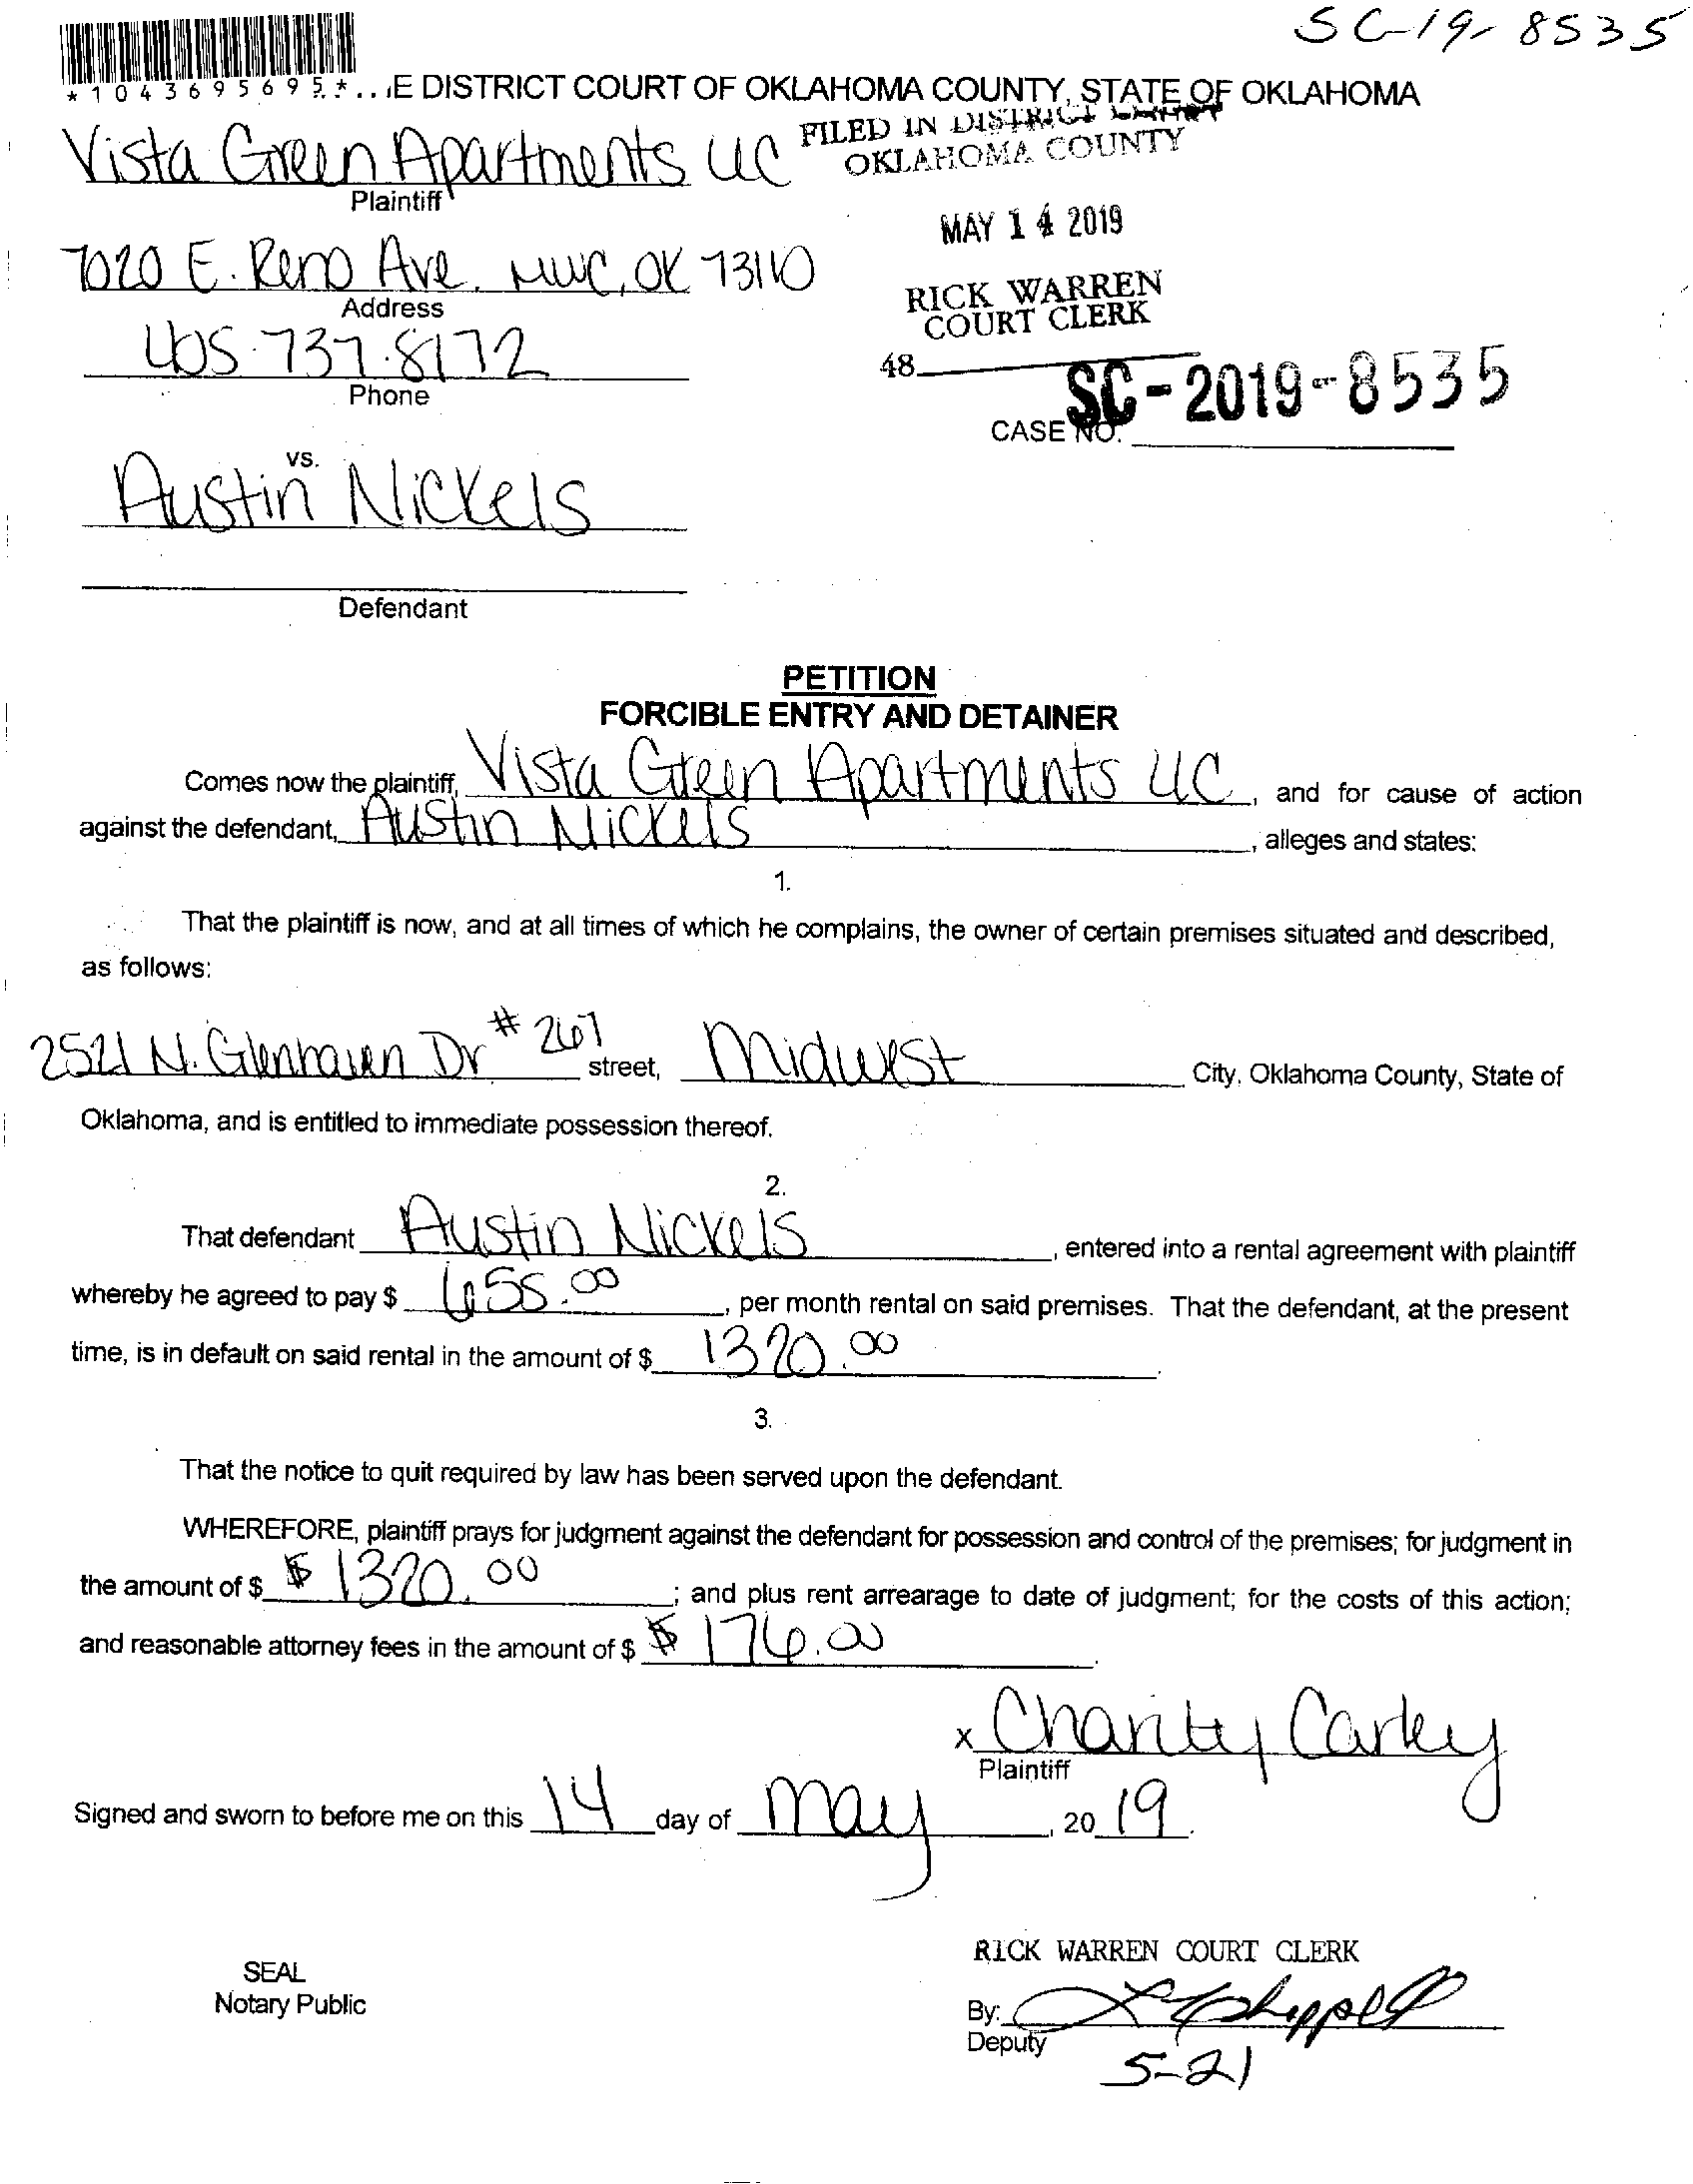 SC-19-8535
*1043695695*...E DISTRICT COURT OF OKLAHOMA COUNTY, STATE OF OKLAHOMA
Vista Green Apartments LLC
Plaintiff
FILED IN DISTRICT COURT
OKLAHOMA COUNTY
MAY 14 2019
RICK WARREN
COURT CLERK
48
7020 E. Reno Ave. MWC, OK 73110
Address
405.737.8172
Phone
SC-2019-8535
CASE NO.
vs.
Austin Nickels
Defendant
PETITION
FORCIBLE ENTRY AND DETAINER
Comes now the plaintiff, Vista Green Apartments LLC, and for cause of action
against the defendant, Austin Nickels, alleges and states:
1.
That the plaintiff is now, and at all times of which he complains, the owner of certain premises situated and described,
as follows:
2521 N. Glenhaven Dr #267 street, Midwest City, Oklahoma County, State of
Oklahoma, and is entitled to immediate possession thereof.
2.
That defendant Austin Nickels, entered into a rental agreement with plaintiff
whereby he agreed to pay $ 655.00, per month rental on said premises. That the defendant, at the present
time, is in default on said rental in the amount of $ 1320.00.
3.
That the notice to quit required by law has been served upon the defendant.
WHEREFORE, plaintiff prays for judgment against the defendant for possession and control of the premises; for judgment in
the amount of $ $1320.00; and plus rent arrearage to date of judgment; for the costs of this action;
and reasonable attorney fees in the amount of $ $176.00.
x Charity Carley
Plaintiff
Signed and sworn to before me on this 14 day of May, 2019.
SEAL
Notary Public
RICK WARREN COURT CLERK
By:
Deputy
5-21